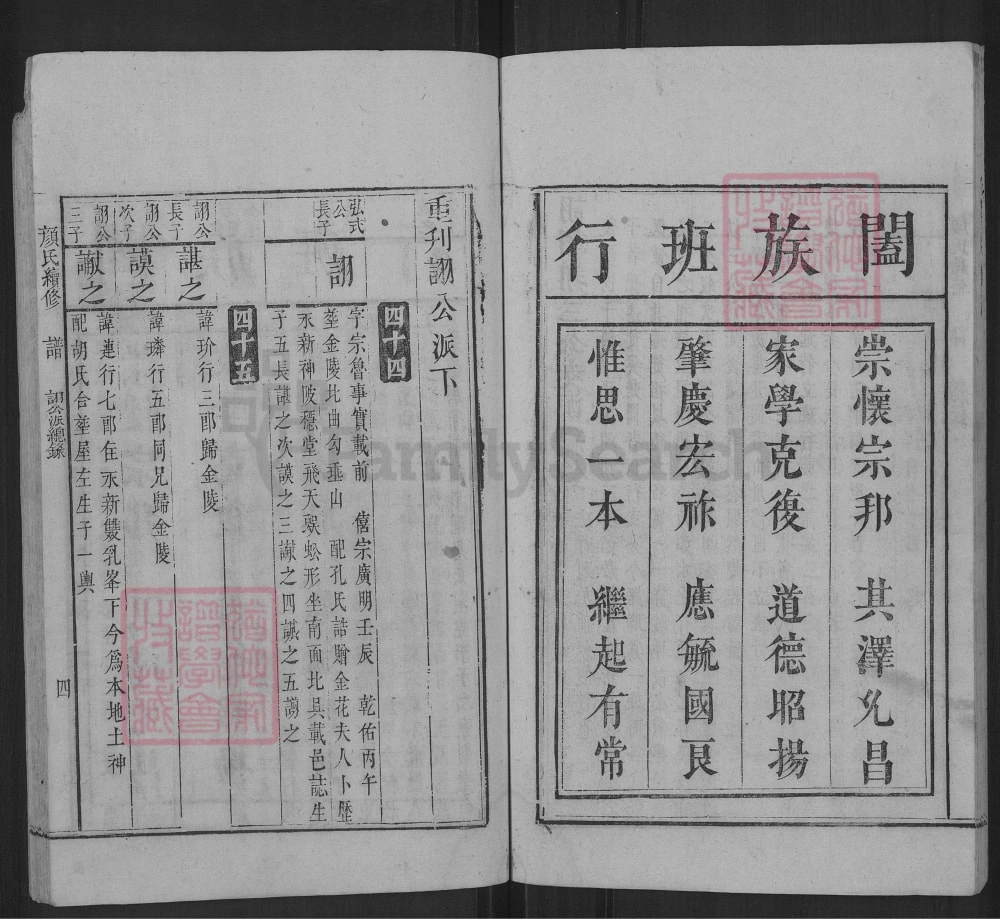 闔族班行
崇懷宗邦　其澤乆昌
家學克復　道德昭揚
肇慶宏祚　應毓國良
惟思一本　繼起有常
重刋詡公派下
四十四
弘式公長子
詡
字宗魯事實載前　僖宗廣明壬辰　乾佑丙午
塟金陵北曲勾垂山　配孔氏誥贈金花夫人卜塟
永新神陂穩堂飛天蜈蚣形坐南面北具載邑誌生
子五長諶之次謨之三讞之四諆之五謭之
四十五
詡公長子
諶之
諱玠行三郎歸金陵
詡公次子
謨之
諱璘行五郎同兄歸金陵
詡公三子
讞之
諱連行七郎住永新雙乳峯下今爲本地土神
配胡氏合塟屋左生子一輿
顏氏續修　譜　詡公派總錄　四
FamilySearch